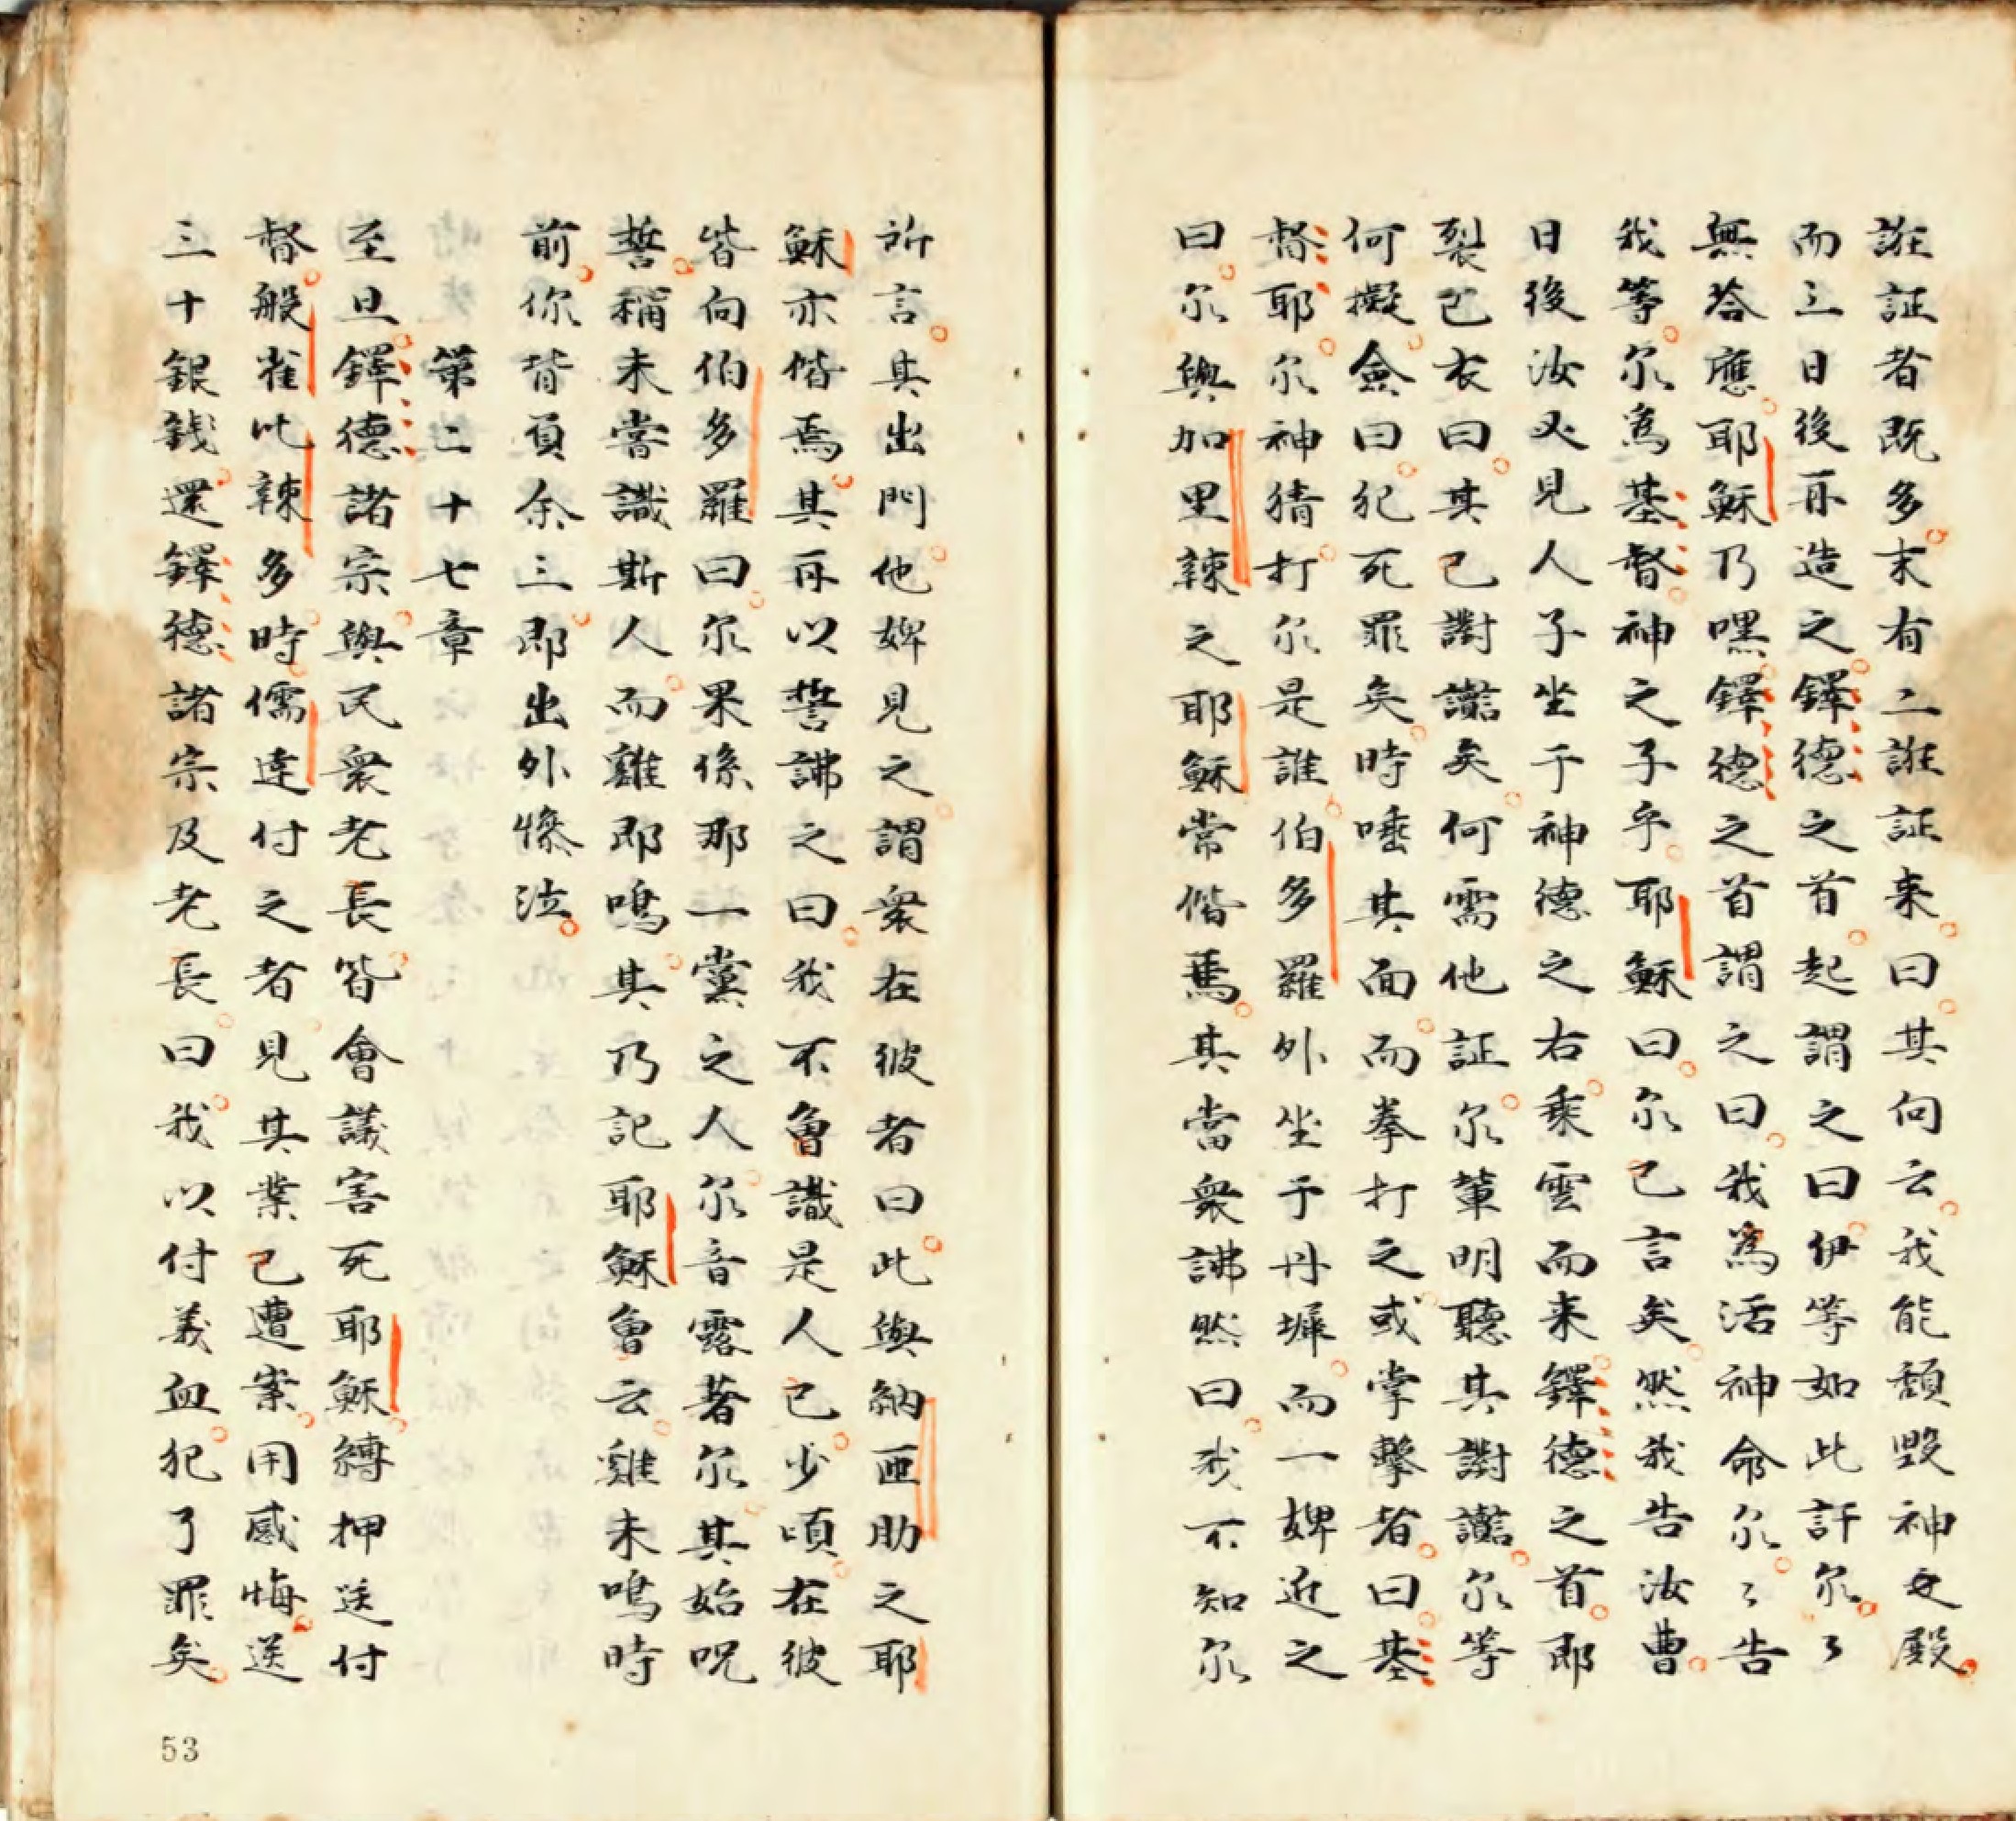 誑証者既多。末有二誑証來。曰。其向云。我能頹毀神之殿。
而三日後再造之。鐸德之首。起謂之曰。伊等如此訐尔。々
無荅應。耶穌乃嘿。鐸德之首謂之曰。我為活神命尔。々告
我等。尔為基督。神之子乎。耶穌曰。尔已言矣。然我告汝曹。
日後汝又見人子坐于神德之右。乘雲而来。鐸德之首。即
裂已衣曰。其已讟矣。何需他証。尔輩明聽其讟。尔等
何擬。僉曰。犯死罪矣。時唾其面。而拳打之。或掌擊者。曰。基
督耶。尔神猜。打尔是誰。伯多羅外坐于丹墀。而一婢近之
曰。尔與加里辣之耶穌常偕焉。其當衆誹然曰。我不知尔
所言。其出門。他婢見之。謂衆在彼者曰。此與納匝肋之耶
穌亦偕焉。其再以誓誹之曰。我不曾識是人。已少頃。在彼
皆向伯多羅曰。尔果係那一黨之人。尔音露著尔。其始呪
誓。稱未嘗識斯人。而雞即鳴。其乃記耶穌曾云。雞未鳴時
前。你背負余三。即出外慘泣。
第二十七章
至旦。鐸德諸宗。與民衆老長。皆會議害死耶穌。縛押送付
督。般雀比辣多。時儒達付之者。見其業已遭案。用感悔。送
三十銀錢。還鐸德諸宗及老長。曰。我以付義血。犯了罪矣。
53